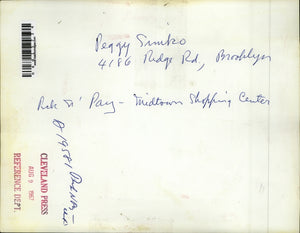 Peggy Simko
4186 Ridge Rd, Brooklyn
Pick N' Pay - Midtown Shopping Center
CLEVELAND PRESS
AUG 9 1967
REFERENCE DEPT.